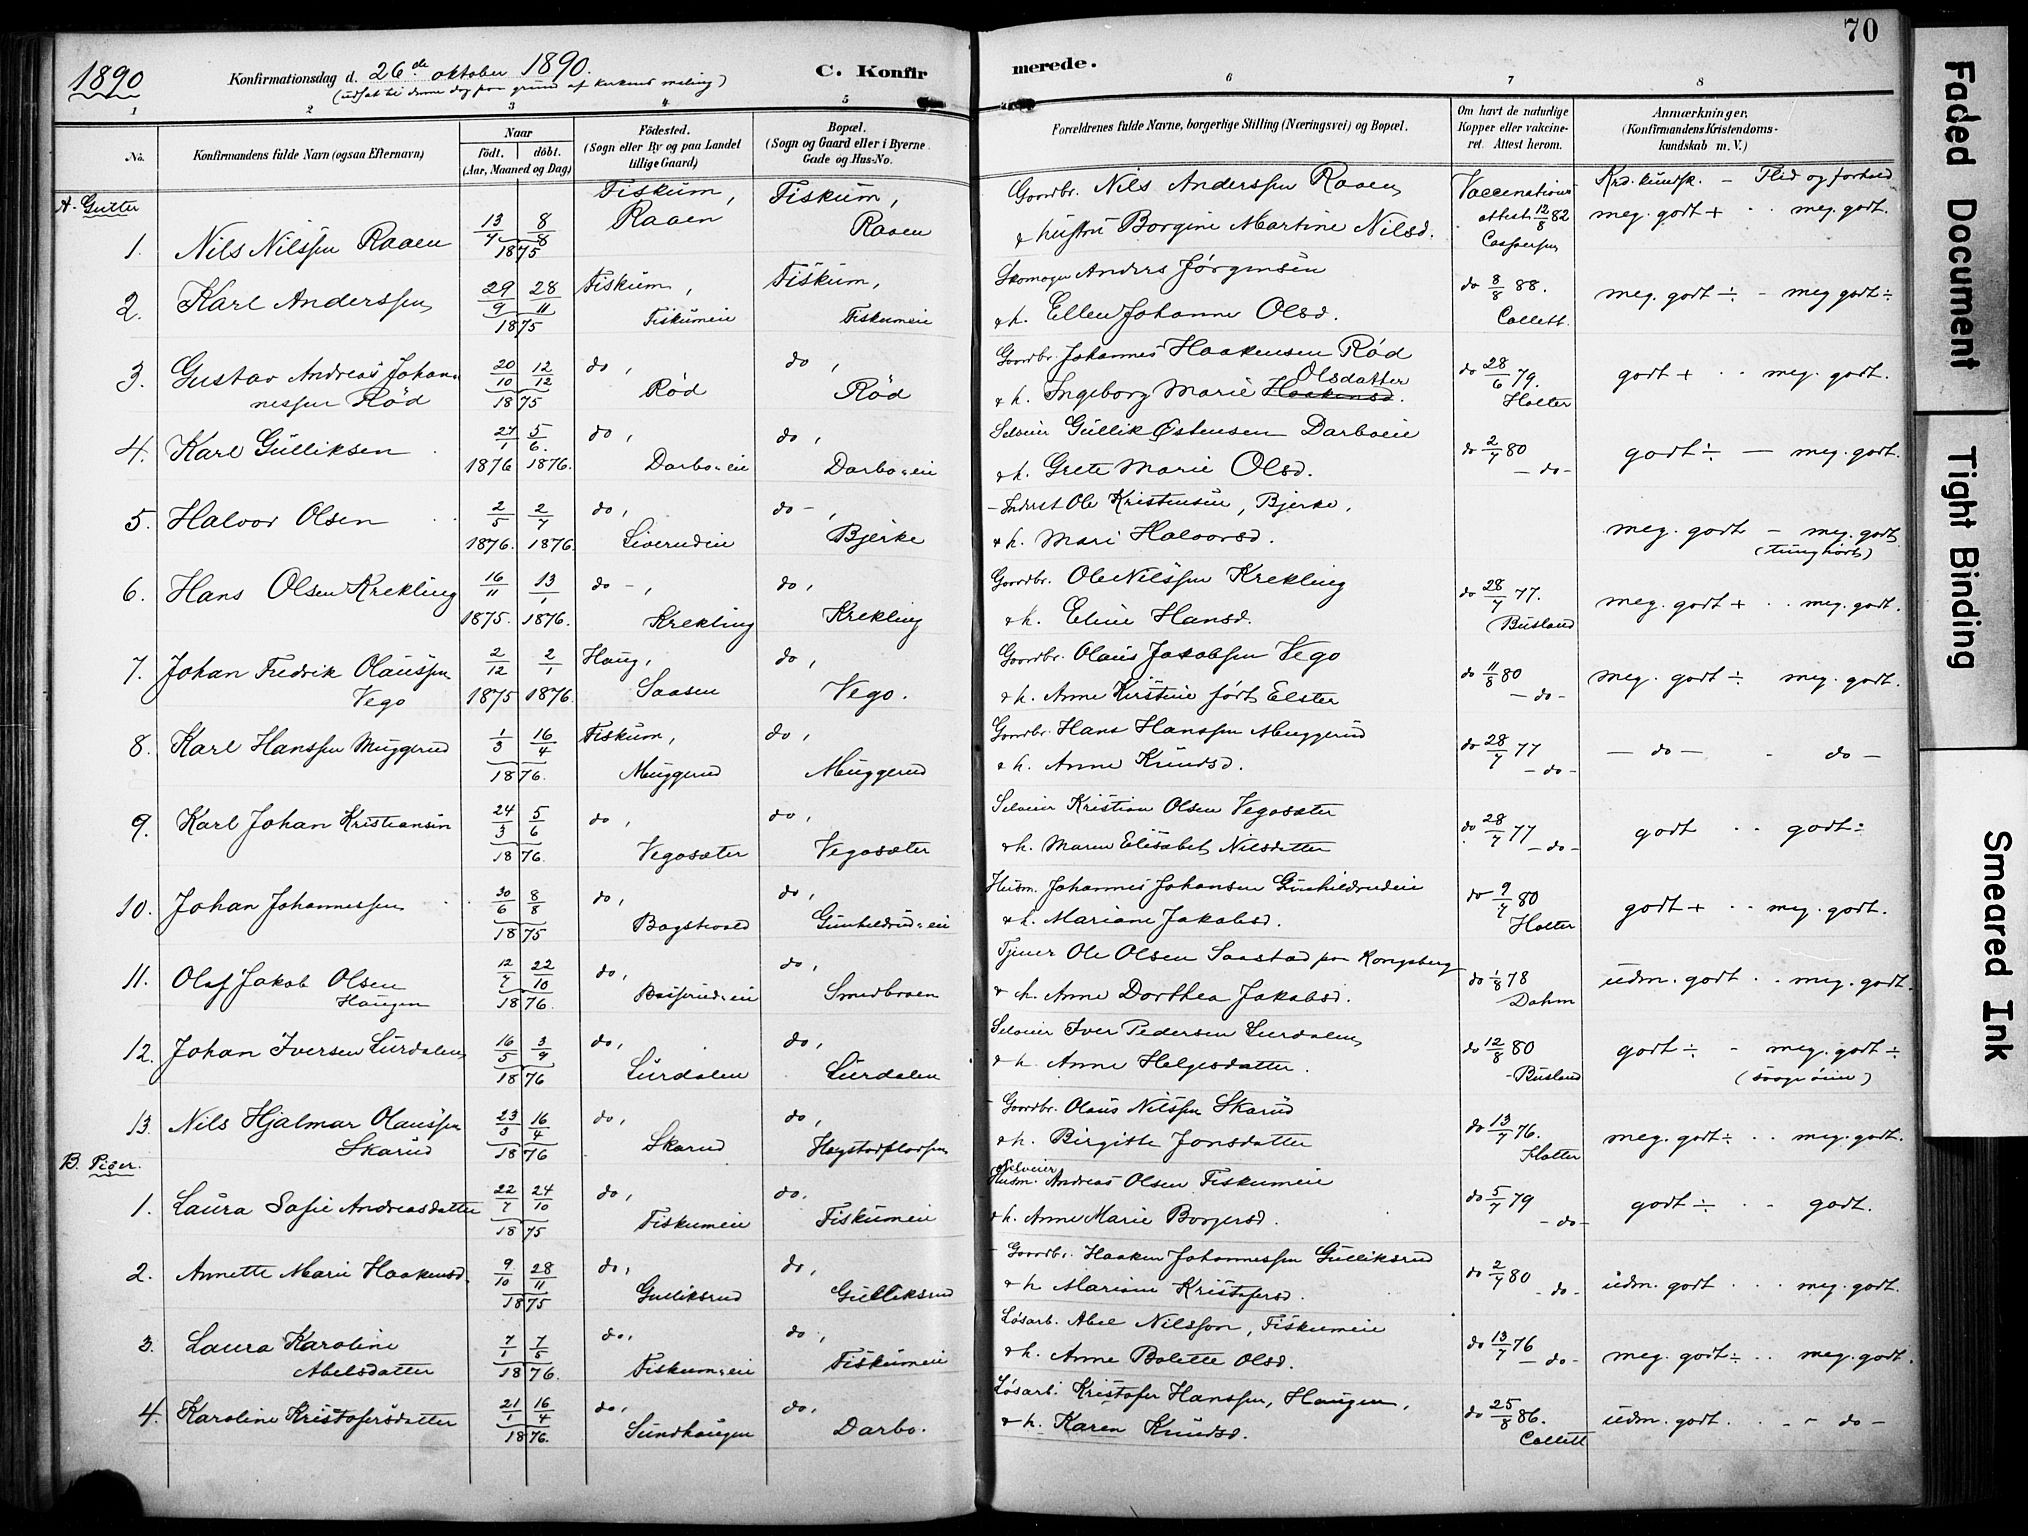 70
1890 Konfirmationsdag d. 26de oktober 1890. C. Konfir merede.
(udsat til denne dag paa grund af kirkens maling)
1 2 3 4 5 6 7 8
No. Konfirmandens fulde Navn (ogsaa Efternavn) Naar født. døbt. (Aar, Maaned og Dag) Fødested. (Sogn eller By og paa Landet tillige Gaard) Bopæl. (Sogn og Gaard eller i Byerne Gade og Hus-No. Forældrenes fulde Navne, borgerlige Stilling (Næringsvei) og Bopæl. Om havt de naturlige Kopper eller vakcineret. Attest herom. Anmærkninger. (Konfirmandens Kristendomskundskab m. V.)
A. Gutter
Krd. kundsk. – Flid og forhold
1. Nils Nilssen Raaen 13/7 8/8 1875 Fiskum, Raaen Fiskum, Raaen Gaardbr. Nils Anderssen Raaen Vaccinations attest 12/8 82 meg. godt + . . meg. godt.
& hustru Borgine Martine Nilsd. Caspersen
2. Karl Anderssen 29/9 28/11 1875 Fiskum, Fiskumeie Fiskum, Fiskumeie Skomager Anders Jørgensen do 8/8 88. meg. godt ÷ - meg godt ÷
& h. Ellen Johanne Olsd. Collett.
3. Gustav Andreas Johan- 20/10 12/12 1875 do, Rød do, Rød Gaardbr. Johannes Haakensen Rød do 28/6 79. godt + . . meg. godt.
nessen Rød & h. Ingeborg Marie Haakensd. Olsdatter Holter
4. Karl Gulliksen 27/1 1876 5/6. 1876. do, Darbo-eie do, Darbo-eie Selveier Gullik Østensen Darboeie do 2/7 80 godt ÷ — meg. godt.
& h. Grete Marie Olsd. – do –
5. Halvor Olsen 2/5 1876. 2/7 1876. do, Siverudeie do –, Bjerke – Inderst Ole Kristensen, Bjerke, meg. godt – meg. godt
& h. Mari Halvorsd. (tunghørt)
6. Hans Olsen Krekling 16/11 1875. 13/1 1876. do –, Krekling do, Krekling Gaardbr. Ole Nilssen Krekling do 28/7 77. meg. godt + . . meg. godt.
& h. Eline Hansd. Busland
7. Johan Fredrik Olaussen 2/12 1875 2/1 1876. Haug, Saasen do, Vego. Gaardbr. Olaus Jakobsen Vego do 11/8 80 meg. godt ÷ meg. godt.
Vego & h. Anne Kirstine født Elster – do –
8. Karl Hanssen Muggerud 1/3 16/4 1876. Fiskum, Muggerud do, Muggerud Gaardbr. Hans Hanssen Muggerud do 28/7 77 – do – - do –
& h. Anne Knudsd. – do –
9. Karl Johan Kristiansen 24/3 5/6 1876. do, Vegosæter do, Vegosæter Selveier Kristian Olsen Vegosæter do 28/7 77 godt . . godt ÷
& h. Maren Elisabet Nilsdatter – do –
10. Johan Johannessen 30/6 8/8 1875 do, do, Gunhildrud-eie Husm. Johannes Johansen Gunhildrudeie do 9/7 80 godt + . . meg. godt.
& h. Mariane Jakobsd. Holter
11. Olaf Jakob Olsen 12/7 22/10 1876. do, do, Smedbraaen Tjener Ole Olsen Saastad paa Kongsberg do 1/8 78 udm. godt . . meg. godt.
Haugen & h. Anne Dorthea Jakobsd. Dahm
12. Johan Iversen Surdalen 16/5 3/9 1876 do, Surdalen do, Surdalen Selveier Iver Pedersen Surdalen do 12/8 80 godt ÷ - meg. godt ÷
& h. Anne Helgesdatter. – Busland
13. Nils Hjalmar Olaussen 23/3 16/4 1876 do, Skarud do, Gaardbr. Olaus Nilssen Skarud do 13/7 76. meg. godt ÷ . . meg. godt.
Skarud & h. Birgitte Jonsdatter Holter
B. Piger.
1. Laura Sofie Andreasdatter 22/7 24/10 1875 do, Fiskumeie do. Fiskumeie Selveier Husm. Andreas Olsen Fiskumeie do 5/7 79 godt ÷ . - godt.
& h. Anne Marie Borgersd. – do –
2. Annette Marie Haakensd. 9/10 28/11 1875 do, Gulliksrud do, Gulliksrud – Gaardbr. Haaken Johannessen Gulliksrud do 2/7 80 udm. godt . . . meg. godt.
& h Mariane Kristofersd. – do –
3. Laura Karoline 7/1 7/5 1876. do, Fiskum-eie do, Fiskumeie Løsarb. Abel Nilsson, Fiskumeie do 13/7 76 meg. godt ÷ . . meg. godt.
Abelsdatter & h. Anne Bolette Olsd. – do –
4. Karoline Kristofersdatter 21/1 16/4 1876. do, Sundhaugen do, Darbo. Løsarb. Kristofer Hanssen, Haugen, do 25/8 86. udm. godt. . - - do –
& h. Karen Knudsd. Collett
Faded Document
Tight Binding
Smeared Ink